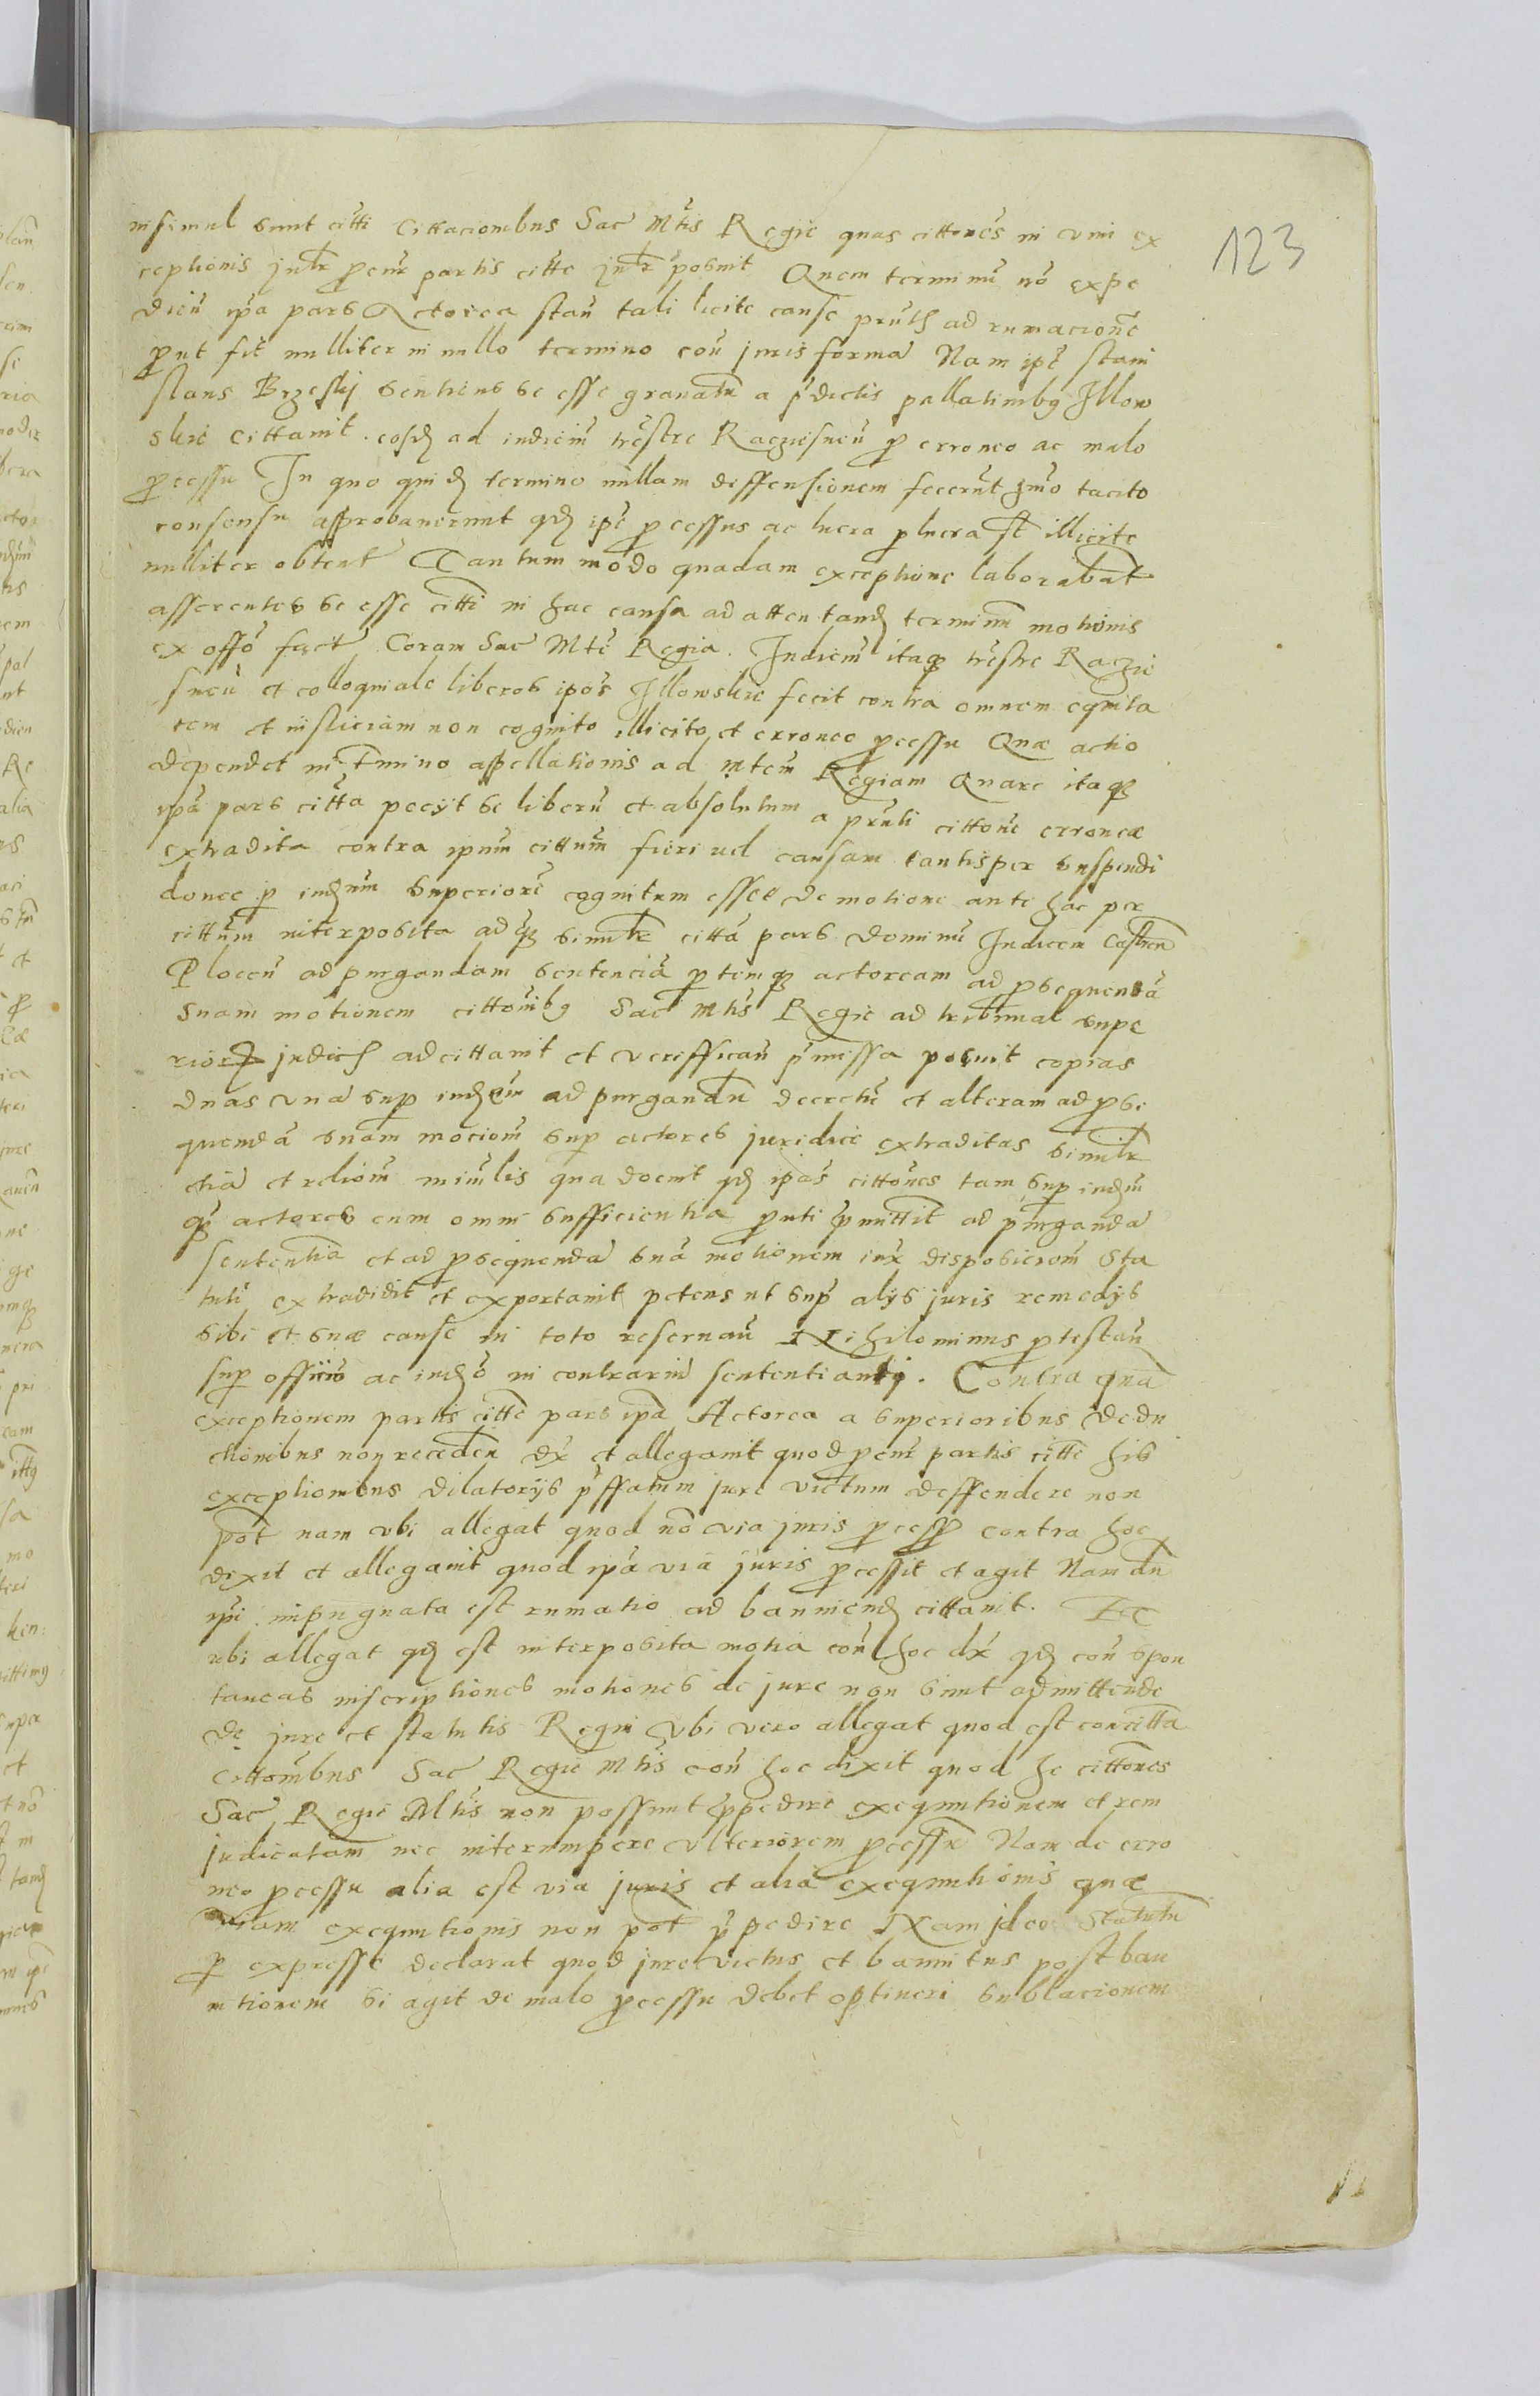 123
insimul sunt citti Cittacionibus Sac Mtis Regie quas cittones in vim ex
ceptionis intr partis citte intr posuit Quem terminu no expe
dien ipa pars Actorea stan tali licite cause ad rumacione
put sit nulliter in nullo termino con juris forma Nam ipe stani
slaus Brzeskj sentiens se esse gravatu a pdictis pallatinibq Illow
skie cittavit eosd ad indiciu trestre Racziesneu p erroneo ac malo
pcessu In quo quid termino nullam deffensionem fecerut Imo tacito
consensu approbaverunt qd ipe pcessus ac lucra plucra st illicite
nulliter obtent Tantummodo quadam exceptione laborabat
asserentes se esse citti in hac causa ad attentand terminu motionis
ex offo fact Coram Sac Mte Regia. Iudiciu itaq trestre Raczie
sneu et colloquiale liberos ipos Illowskie fecit contra omnem equita
tem et iusticiam non cognito illicito et erroneo pcessu Quæ actio
dependet in Tmino appellationis ad Mtem Regiam Quare itaq
ipa pars citta peciit se liberu et absolutum a pnti cittone erroneæ
extradita contra ipum cittum fieri vel causam tantisper suspendi
donec p iudium superiore cognitum esset de motione ante hac per
cittum interposita adq simitr citta pars dominu Iudicem Castren
Plocen ad purgandam sentencia ptemq actoream ad psequenda
suam motionem cittonibq Sac Mtis Regie ad tribunal supe
rior judich adcittavit et verifficau pmissa posuit copias
duas una sup iudicem ad purgandu decretu et alteram ad pse
quemda suam mocionem sup actores juridice extraditas simitr
etia et reliom miulis qua docuit qd ipas cittones tam sup iudium
q actores cum omni sufficientia puti pmittit ad purganda
sententia et ad psequenda sua motionem iux disposiciom sta
tuti extradidit et exportavit petens ut sup alijs juris remedijs
sibi et suæ cause in toto reservau Nihilominus ptestau
sup officio ac iudo in contrariu sententiantj. Contra qua
exceptionem partis citte pars ipa Actorea a superioribus dedu
ctionibus non receden dx et allegavit quod penr partis citte his
exceptionibus dilatorijs pffatum jure victum deffendere non
pot nam ubi allegat quod no via juris pcess contra hoc
dixit et allegavit quod ipa via juris pcessit et agit Nam du
ipi inpugnata est rumatio ad banniend cittavit. It
ubi allegat qd est interposita motia con hoc dx qd con spon
taneas inscriptiones motiones de jure non sunt admittende
de jure et statutis Regni Ubi vero allegat quod est concitta
cittonibus Sac Regie Mtis con hoc dixit quod he cittones
Sac Regie Mtis non possunt ppedire exequutionem et rem
judicatam nec interumpere ulteriorem pcessu Nam de erro
neo pcessu alia est via juris et alia exequutionis quæ
viam exequutionis non pot ppedire Nam jdeo Statutu
p expresse declarat quod jure victus et bannitus post ban
nitionem si agit de malo pcessu debet optineri sublacionem